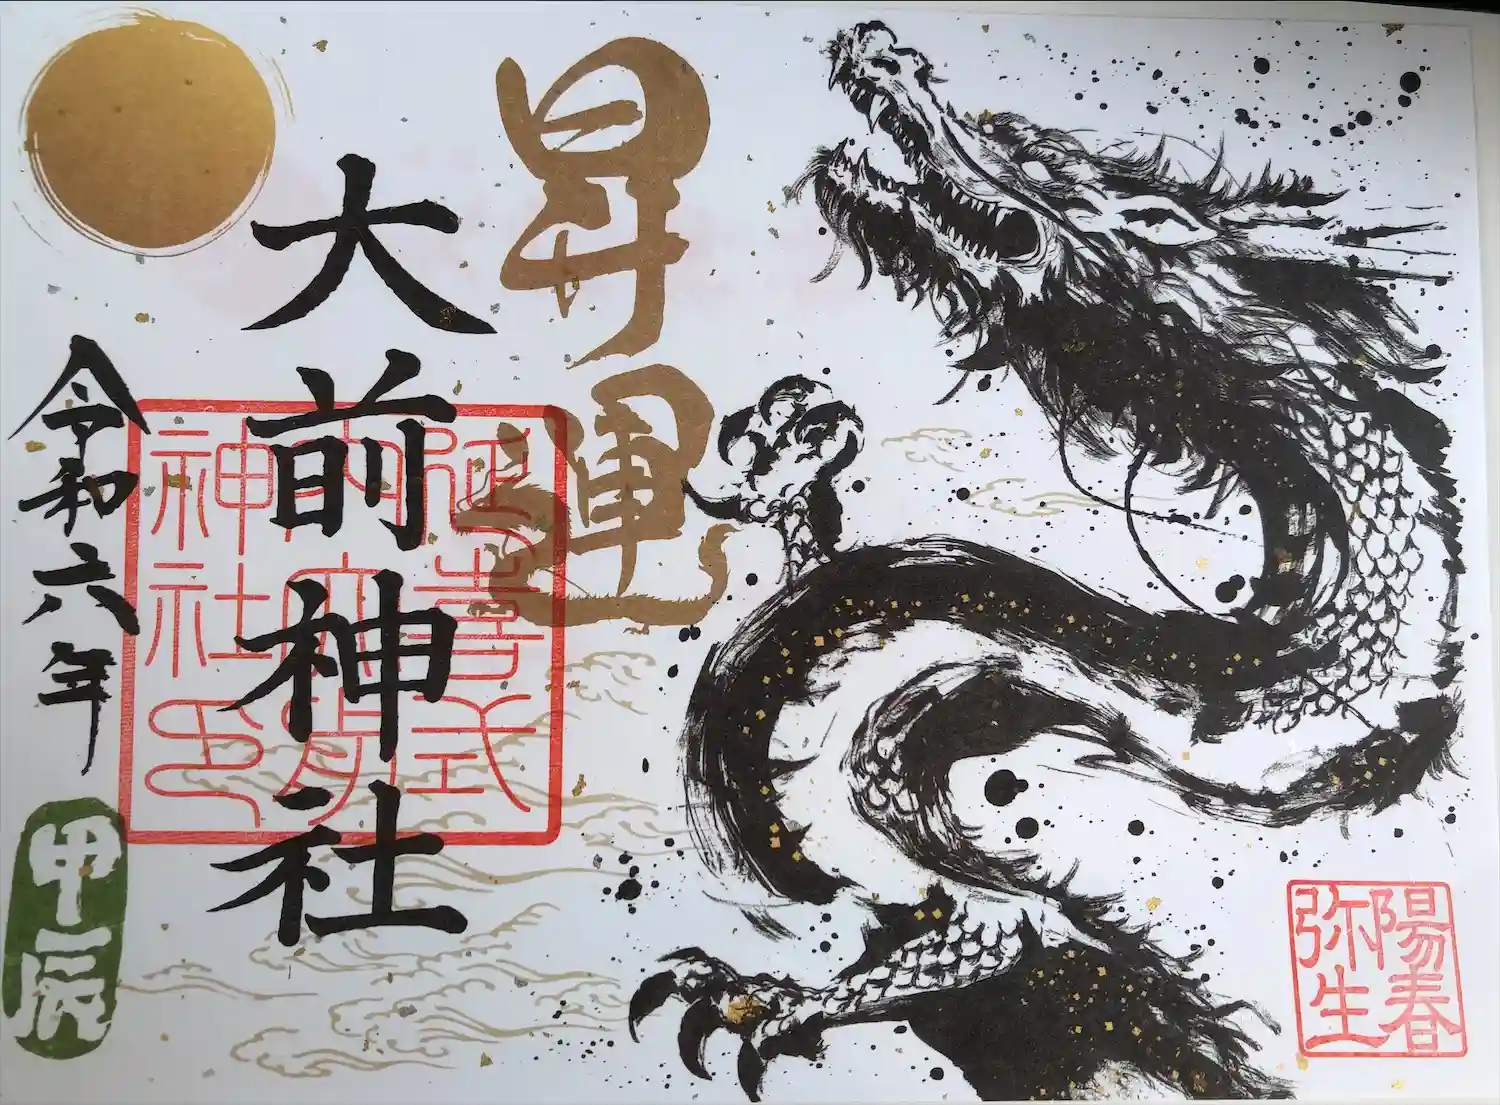 陽春
弥生
昇運
大前神社
延喜式
内大前
神社印
令和六年
甲辰